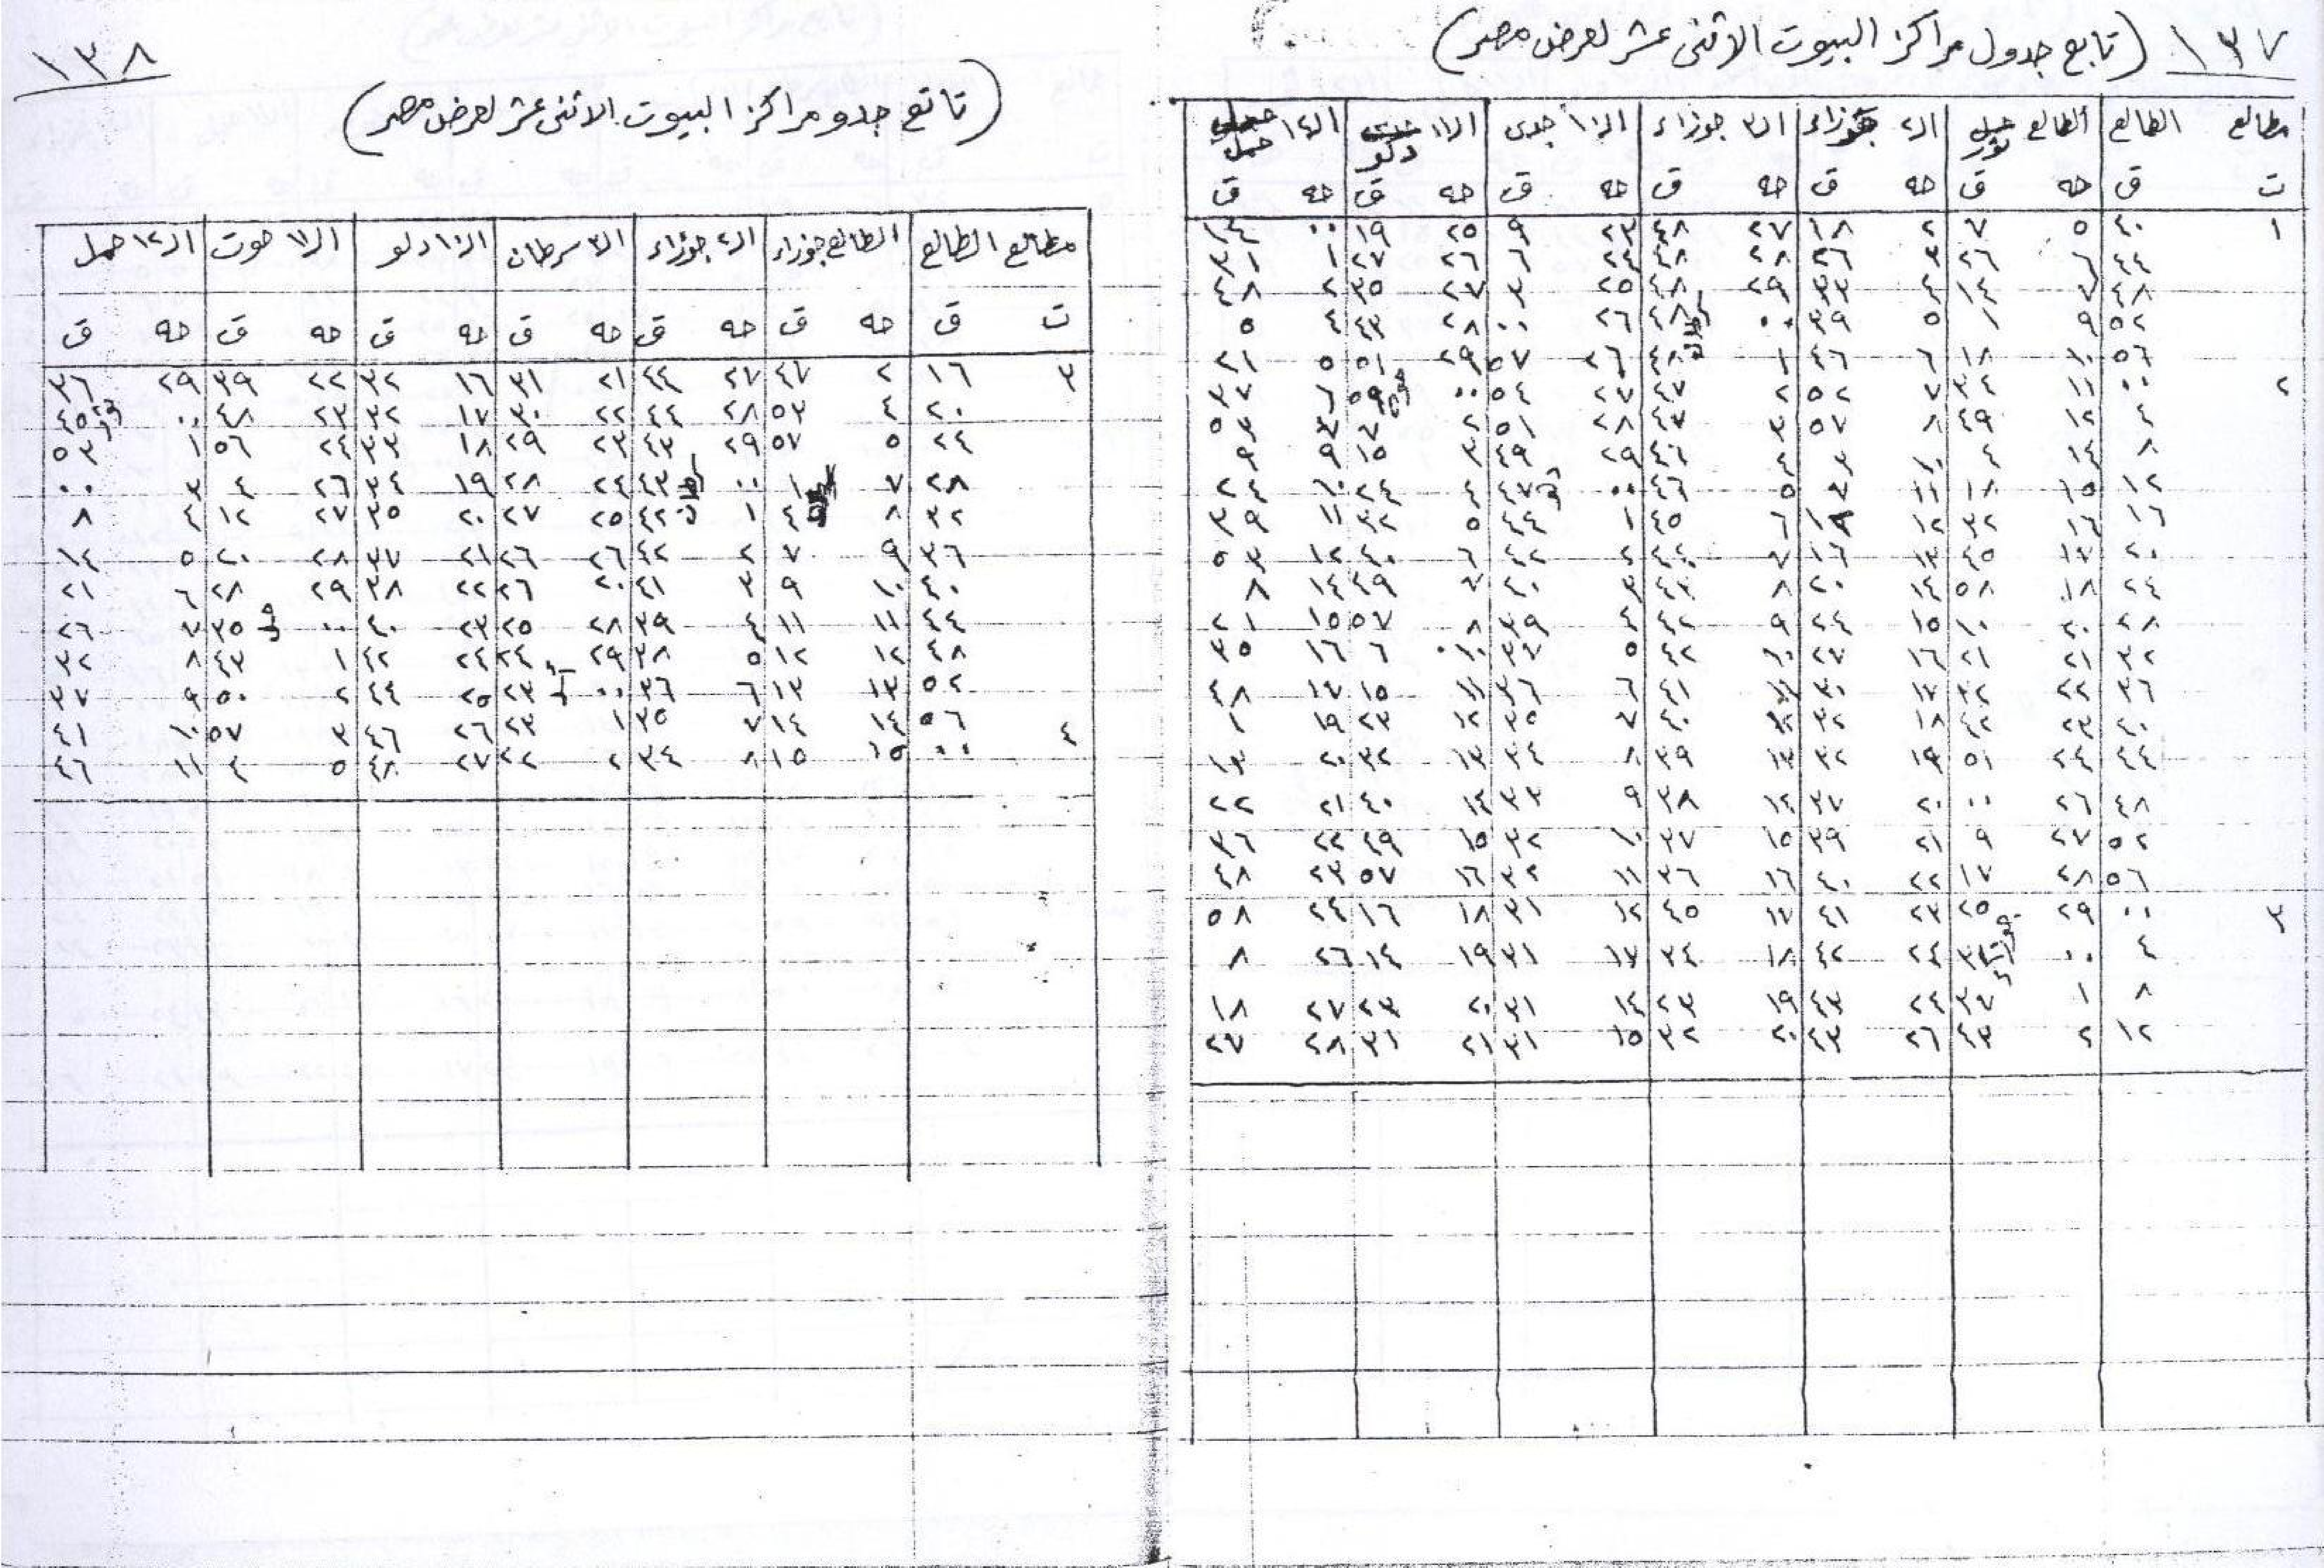 ١٣٧ (تابع جدول مراكز البيوت الاثنى عشر لعرض مصر)
مطالع الطالع الطالع ثور ال٢ جوزاء ال٣ جوزاء ال١٠ جدى ال١١ دلو ال١٢ حمل
ت ق حه ق حه ق حه ق حه ق حه ق حه ق
١ ٤٠ ٥ ٧ ٢ ١٨ ٢٧ ٤٨ ٢٣ ٩ ٢٥ ١٩ ٠٠ ١٤
٤٤ ٦ ٢٦ ٣ ٢٦ ٢٨ ٤٨ ٢٤ ٦ ٢٦ ٢٧ ١ ٣١
٤٨ ٧ ١٤ ٤ ٣٣ ٢٩ ٤٨ ٢٥ ٣ ٢٧ ٣٥ ٢ ٤٨
٥٢ ٩ ١ ٥ ٣٩ ٠٠ سرطان ٤٨ ٢٦ ٠٠ ٢٨ ٤٣ ٤ ٥
٥٦ ١٠ ١٨ ٦ ٤٦ ١ ٤٨ ٢٦ ٥٧ ٢٩ ٥١ ٥ ٢١
٢ ٠٠ ١١ ٣٤ ٧ ٥٢ ٢ ٤٧ ٢٧ ٥٤ ٠٠ حوت ٥٩ ٦ ٣٧
٤ ١٢ ٤٩ ٨ ٥٧ ٣ ٤٧ ٢٨ ٥١ ٢ ٧ ٧ ٥٣
٨ ١٤ ٤ ١٠ ٣ ٤ ٤٦ ٢٩ ٤٩ ٣ ١٥ ٩ ٩
١٢ ١٥ ١٨ ١١ ٧ ٥ ٤٦ ٠٠ دلو ٤٧ ٤ ٢٤ ١٠ ٢٤
١٦ ١٦ ٣٢ ١٢ ١٢ ٦ ٤٥ ١ ٤٤ ٥ ٣٢ ١١ ٣٩
٢٠ ١٧ ٤٥ ١٣ ١٦ ٧ ٤٤ ٢ ٤٢ ٦ ٤٠ ١٢ ٥٣
٢٤ ١٨ ٥٨ ١٤ ٢٠ ٨ ٤٣ ٣ ٤٠ ٧ ٤٩ ١٤ ٨
٢٨ ٢٠ ١٠ ١٥ ٢٤ ٩ ٤٢ ٤ ٣٩ ٨ ٥٧ ١٥ ٢١
٣٢ ٢١ ٢١ ١٦ ٢٧ ١٠ ٤٢ ٥ ٣٧ ١٠ ٦ ١٦ ٣٥
٣٦ ٢٢ ٣٢ ١٧ ٣٠ ١١ ٤١ ٦ ٣٦ ١١ ١٥ ١٧ ٤٨
٤٠ ٢٣ ٤٢ ١٨ ٣٢ ١٢ ٤٠ ٧ ٣٥ ١٢ ٢٣ ١٩ ١
٤٤ ٢٤ ٥١ ١٩ ٣٢ ١٣ ٣٩ ٨ ٣٤ ١٣ ٣٢ ٢٠ ١٣
٤٨ ٢٦ ٠٠ ٢٠ ٣٧ ١٤ ٣٨ ٩ ٣٣ ١٤ ٤٠ ٢١ ٢٢
٥٢ ٢٧ ٩ ٢١ ٣٩ ١٥ ٣٧ ١٠ ٣٢ ١٥ ٤٩ ٢٢ ٣٦
٥٦ ٢٨ ١٧ ٢٢ ٤٠ ١٦ ٣٦ ١١ ٣٢ ١٦ ٥٧ ٢٣ ٤٨
٣ ٠٠ ٢٩ ٢٥ ٢٣ ٤١ ١٧ ٤٥ ١٢ ٣١ ١٨ ١٦ ٢٤ ٥٨
٤ ٠٠ جوزاء ٣٤ ٢٤ ٤٢ ١٨ ٣٤ ١٧ ٣١ ١٩ ١٤ ٢٦ ٨
٨ ١ ٣٧ ٢٤ ٤٣ ١٩ ٢٣ ١٤ ٣١ ٢٠ ٢٣ ٢٧ ١٨
١٢ ٢ ٤٣ ٢٦ ٤٣ ٢٠ ٣٢ ١٥ ٣١ ٢١ ٣١ ٢٨ ٢٧
١٣٨
(تابع جدو مراكز البيوت الاثنى عشر لعرض مصر)
مطالع الطالع الطالع جوزاء ال٢ جوزاء ال٣ سرطان ال١٠ دلو ال١١ حوت ال١٢ حمل
ت ق حه ق حه ق حه ق حه ق حه ق حه ق
٣ ١٦ ٢ ٤٧ ٢٧ ٤٤ ٢١ ٣١ ١٦ ٣٢ ٢٢ ٣٩ ٢٩ ٣٦
٢٠ ٤ ٥٣ ٢٨ ٤٤ ٢٢ ٣٠ ١٧ ٣٢ ٢٣ ٤٨ ٠٠ ثور ٤٥
٢٤ ٥ ٥٧ ٢٩ ٤٣ ٢٣ ٢٩ ١٨ ٣٣ ٢٤ ٥٦ ١ ٥٣
٢٨ ٧ ١ ٠٠ سرطان ٤٣ ٢٤ ٢٨ ١٩ ٣٤ ٢٦ ٤ ٣ ٠٠
٣٢ ٨ ٤ ١ ٤٢ ٢٥ ٢٧ ٢٠ ٣٥ ٢٧ ١٢ ٤ ٨
٣٦ ٩ ٧ ٢ ٤٢ ٢٦ ٢٦ ٢١ ٣٧ ٢٨ ٢٠ ٥ ١٤
٤٠ ١٠ ٩ ٣ ٤١ ٢٠ ٢٦ ٢٢ ٣٨ ٢٩ ٢٨ ٦ ٢١
٤٤ ١١ ١١ ٤ ٣٩ ٢٨ ٢٥ ٢٣ ٤٠ ٠٠ حمل ٣٥ ٧ ٢٦
٤٨ ١٢ ١٢ ٥ ٣٨ ٢٩ ٢٤ ٢٤ ٤٢ ١ ٤٣ ٨ ٣٢
٥٢ ١٣ ١٣ ٦ ٣٦ ٠٠ أسد ٢٣ ٢٥ ٤٤ ٢ ٥٠ ٩ ٣٧
٥٦ ١٤ ١٤ ٧ ٣٥ ١ ٢٣ ٢٦ ٤٦ ٣ ٥٧ ١٠ ٤١
٤ ٠٠ ١٥ ١٥ ٨ ٣٤ ٢ ٢٢ ٢٧ ٤٨ ٥ ٤ ١١ ٤٦